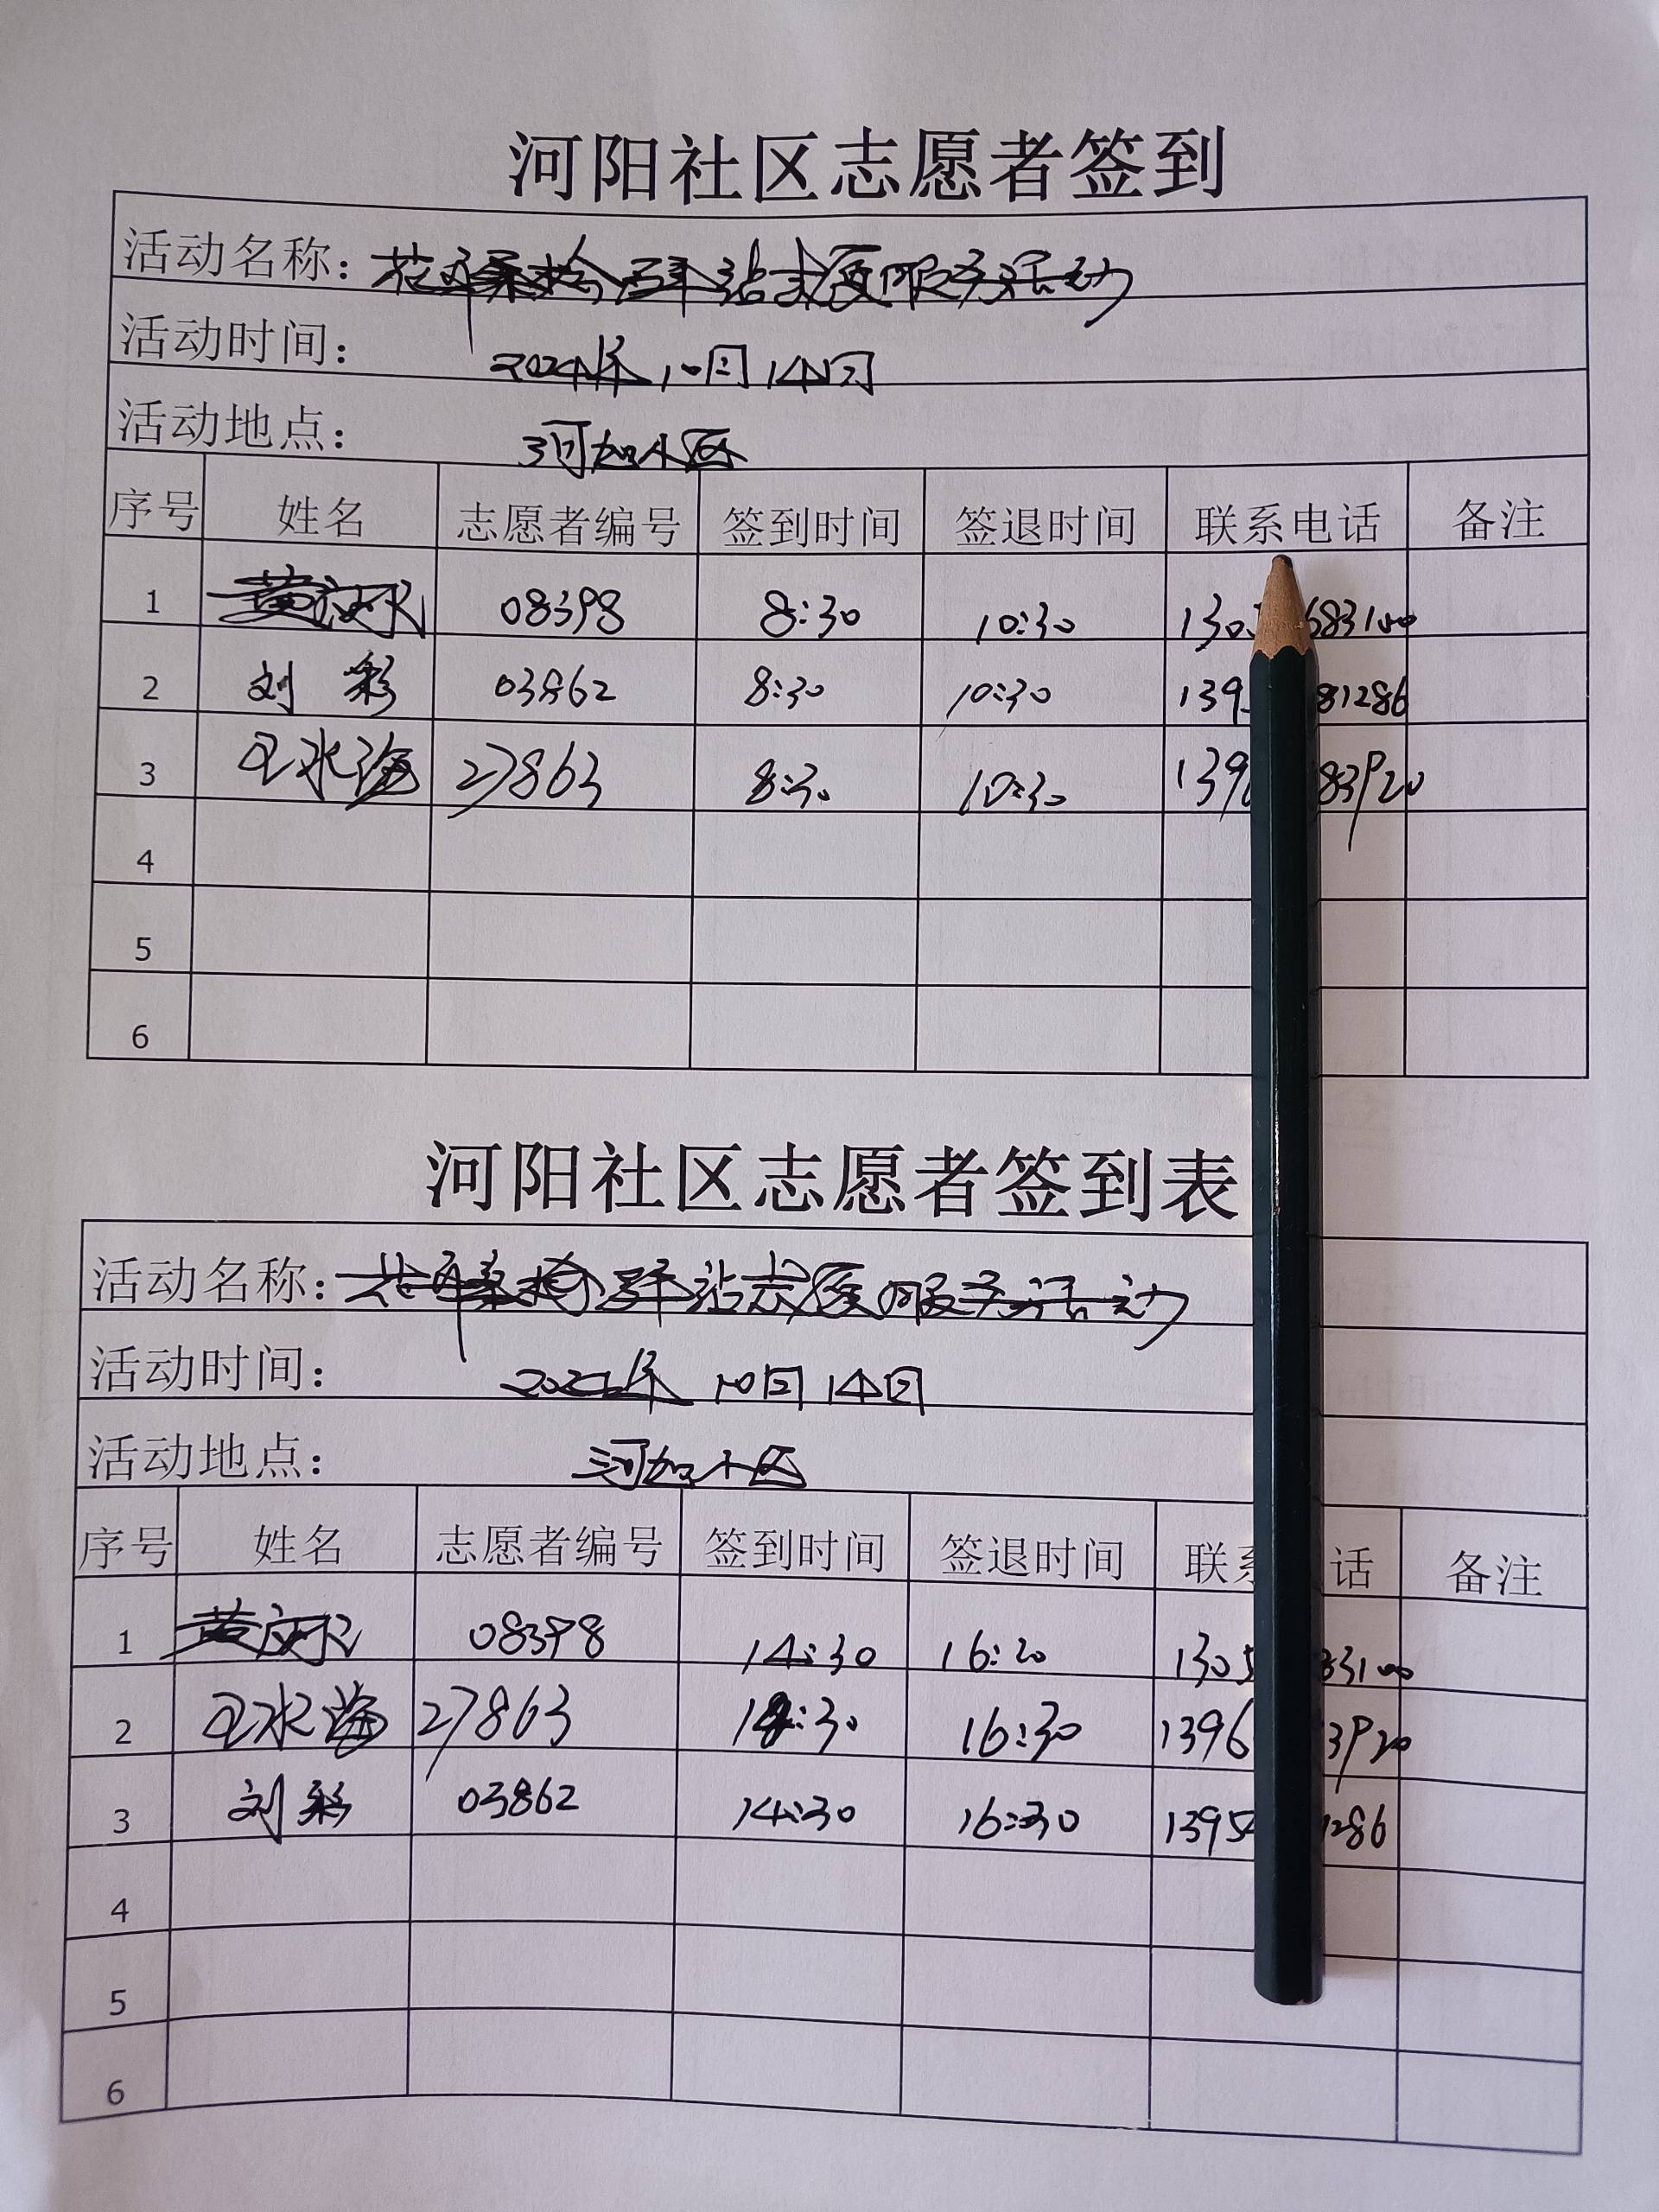 河阳社区志愿者签到
活动名称：驿站志愿服务活动
活动时间：2024年10月14日
活动地点：河加小区
序号 姓名 志愿者编号 签到时间 签退时间 联系电话 备注
1 08398 8:30 10:30
2 刘彩 03862 8:30 10:30
3 王水海 27863 8:30 10:30
4
5
6
河阳社区志愿者签到表
活动名称：驿站志愿服务活动
活动时间：2024年10月14日
活动地点：河加小区
序号 姓名 志愿者编号 签到时间 签退时间 联 话 备注
1 08398 14:30 16:20
2 王水海 27863 14:30 16:30
3 刘彩 03862 14:30 16:30
4
5
6